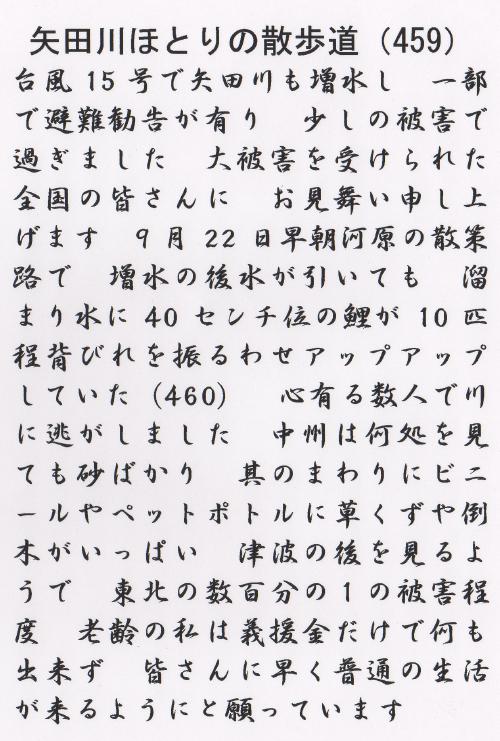 矢田川ほとりの散歩道（459）
台風15号で矢田川も増水し　一部
で避難勧告が有り　少しの被害で
過ぎました　大被害を受けられた
全国の皆さんに　お見舞い申し上
げます　9月22日早朝河原の散策
路で　増水の後水が引いても　溜
まり水に40センチ位の鯉が10匹
程背びれを振るわせアップアップ
していた（460）　心有る数人で川
に逃がしました　中州は何処を見
ても砂ばかり　其のまわりにビニ
ールやペットポトルに草くずや倒
木がいっぱい　津波の後を見るよ
うで　東北の数百分の1の被害程
度　老齢の私は義援金だけで何も
出来ず　皆さんに早く普通の生活
が来るようにと願っています